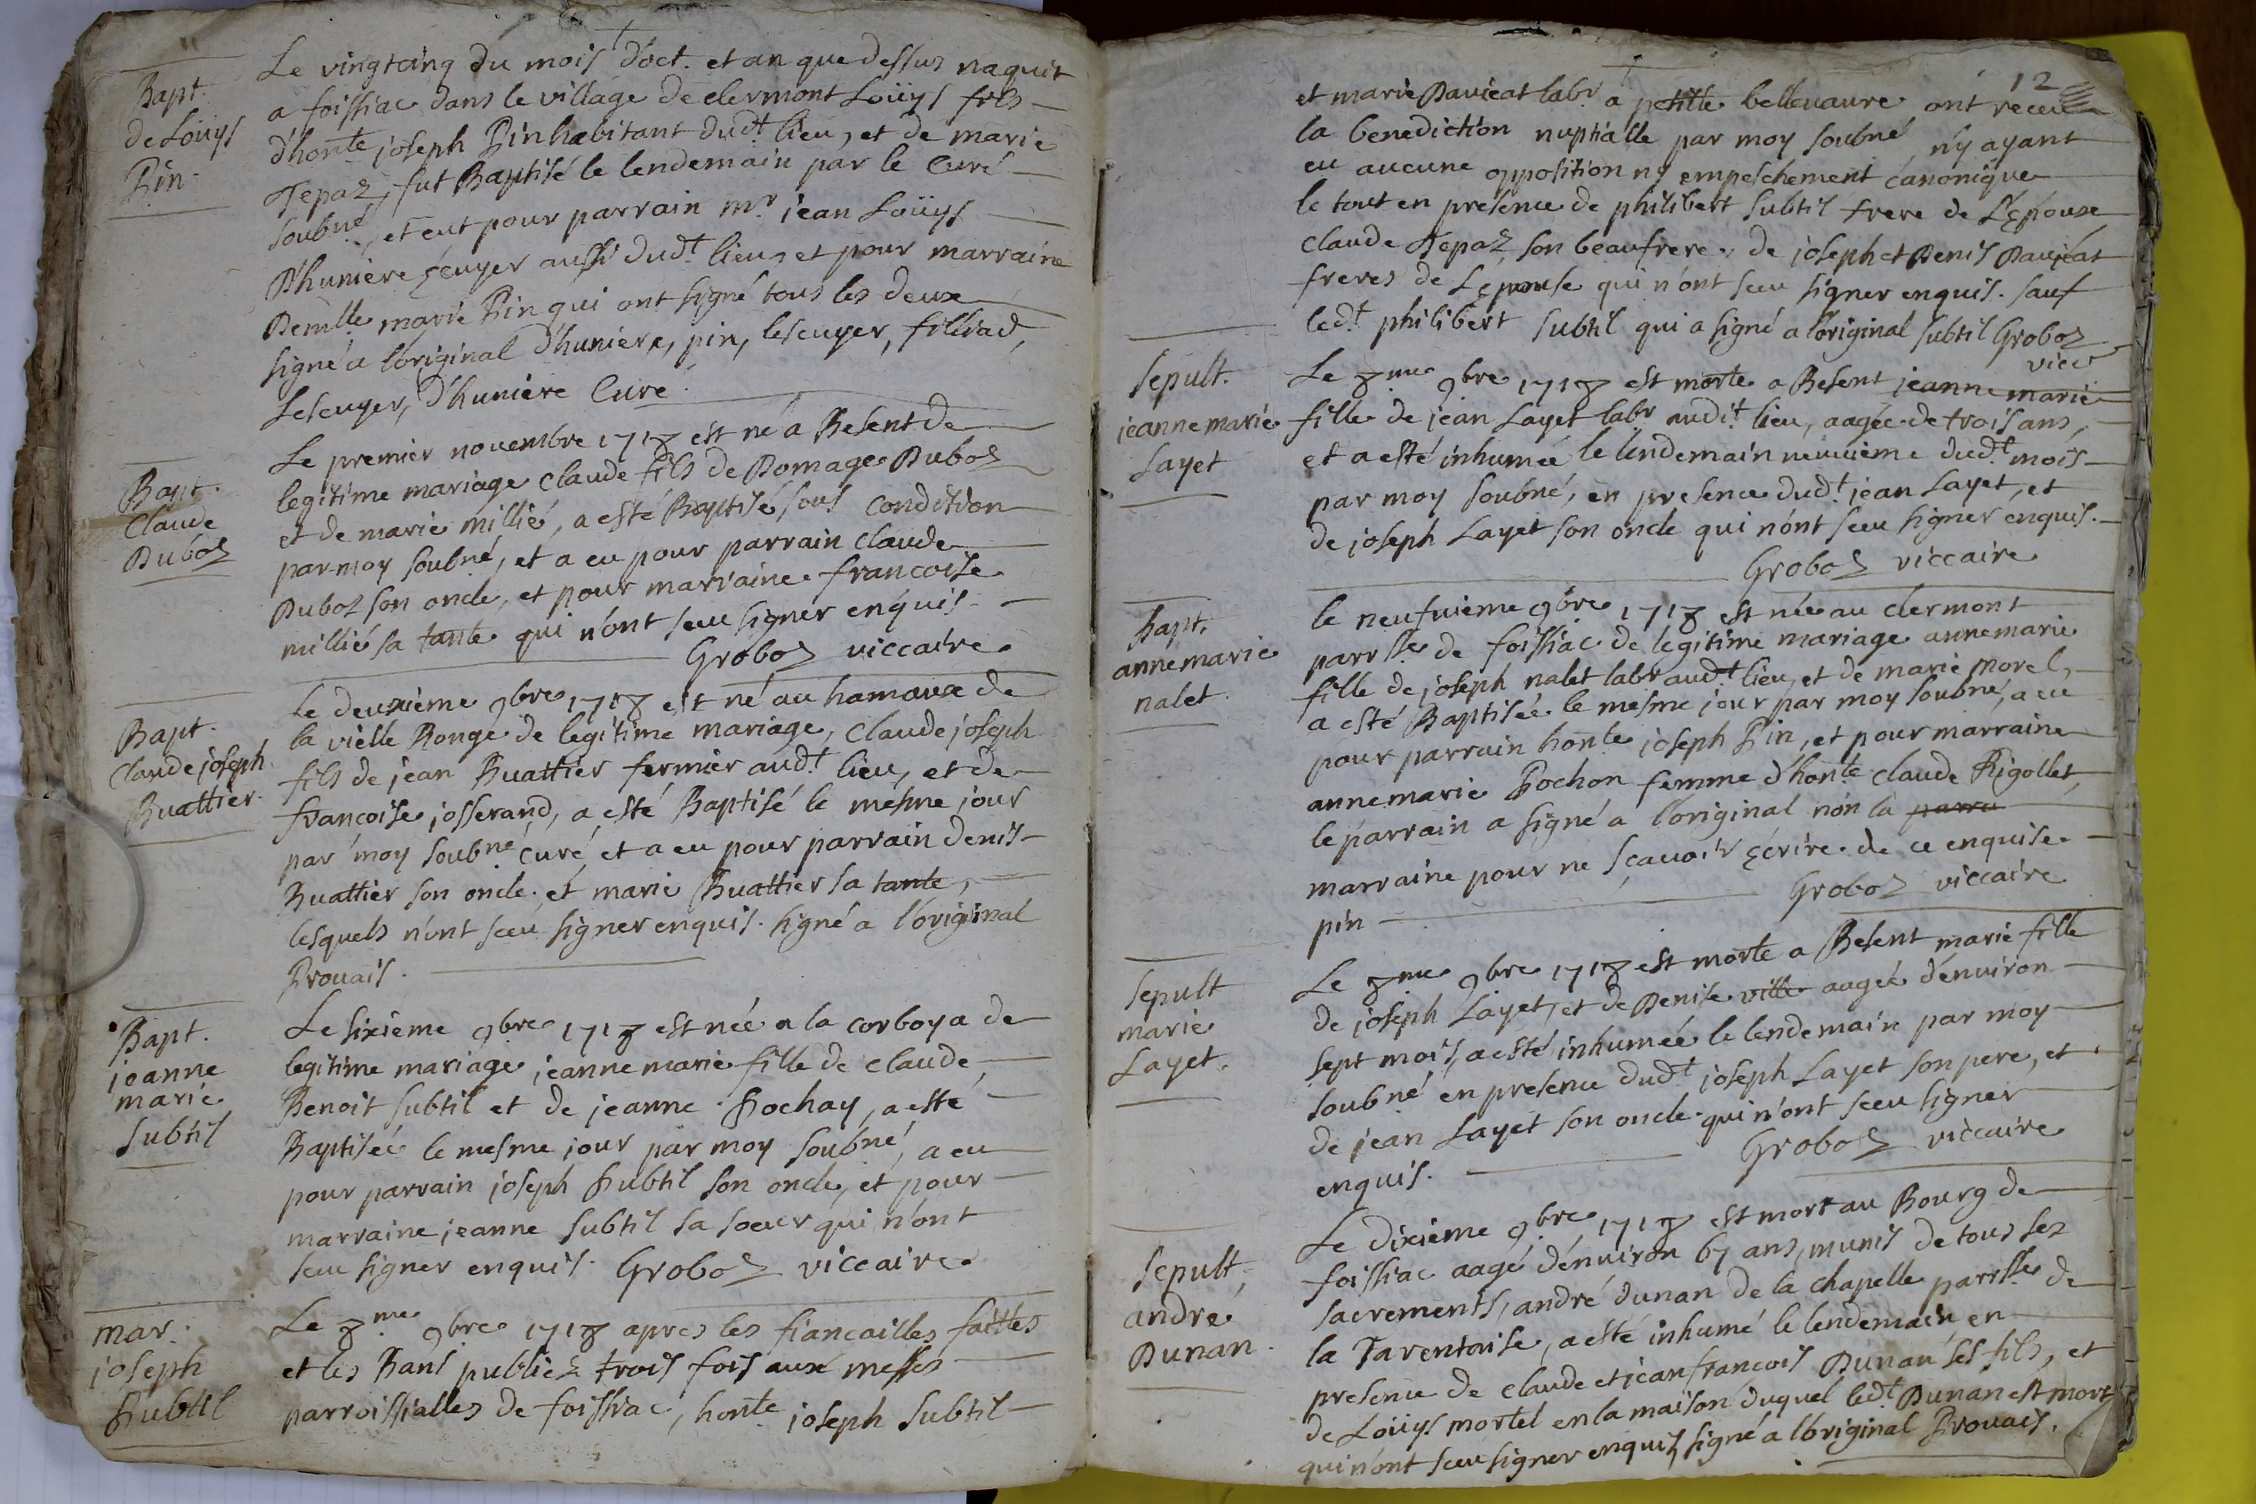 Bapt.
de Loüys
Pin.
Le vingtcinq du mois d'oct. et an que dessus naquit
a foissiac dans le village de clermont Loüys fils
d'honte. joseph Pin habitant dudt. lieu, et de marie
Tepaz, fut Baptisé le lendemain par le Curé
soubné, et eut pour parrain mr. jean Loüys
D'huniere Ecuyer aussi dudt. lieu, et pour marraine
Demlle marie Pin qui ont signé tous les deux
signé a l'original d'huniere, pin, lescuyer, filliad,
Lescuyer, d'huniere Curé.
Bapt.
Claude
Duboz
Le premier novembre 1718 est né a Besent de
legitime mariage claude fils de Domage Duboz
et de marie millié, a esté Baptisé sous condition
par moy soubné, et a eu pour parrain claude
Duboz son oncle, et pour marraine francoise
millié sa tante qui n'ont sceu signer enquis.
Groboz viccaire
Bapt.
Claude joseph
Buattier.
Le deuxième 9bre 1718 est né au hamaux de
la vielle Ronge de legitime mariage, Claude joseph
fils de jean Buattier fermier audt. lieu, et de
francoise josserand, a esté Baptisé le mesme jour
par moy soubné curé, et a eu pour parrain denis
Buattier son oncle, et marie Buattier sa tante,
lesquels n'ont sceu signer enquis. signé a l'original
Prouais.
Bapt.
jeanne
marie
subtil
Le sixieme 9bre 1718 est née a la corboya de
legitime mariage jeanne marie fille de claude
Benoit subtil et de jeanne Pochay, a esté
Baptisée le mesme jour par moy soubné, a eu
pour parrain joseph subtil son oncle, et pour
marraine jeanne subtil sa soeur qui n'ont
sceu signer enquis. Groboz viccaire
mar.
joseph
subtil
Le 8me 9bre 1718 apres les fiancailles faittes
et les Bans publiez trois fois aux messes
parroissialles de foissiac, honte. joseph subtil
12
et marie Davicat labr. a petitte bellevaure ont receu
la benediction nuptialle par moy soubné n'y ayant
eu aucune opposition ny empeschement canonique
le tout en presence de philibert subtil frere de L'Epoux
claude Tepaz son beaufrere, de joseph et Denis Davicat
freres de L'Epouse qui n'ont sceu signer enquis. sauf
ledt. philibert subtil qui a signé a l'original subtil Groboz
vicc
Sepult.
jeanne marie
Layet
Le 8me 9bre 1718 est morte a Besent jeanne marie
fille de jean Layet labr audit lieu, aagée de trois ans,
et a esté inhumée le lendemain neuvieme dudt. mois
par moy soubné, en presence dudt. jean Layet, et
de joseph Layet son oncle qui n'ont sceu signer enquis.
Groboz viccaire
Bapt.
anne marie
nalet.
le neufvieme 9bre 1718 est née au clermont
parrsse de foissiac de legitime mariage anne marie
fille de joseph nalet labr audt. lieu, et de marie morel,
a esté Baptisée le mesme jour par moy soubné, a eu
pour parrain honte. joseph Pin, et pour marraine
anne marie Pochon femme d'honte claude Rigollet,
le parrain a signé a l'original non la parra
marraine pour ne sçavoir Ecrire de ce enquise
pin Groboz viccaire
Sepult
marie
Layet.
Le 8me 9bre 1718 est morte a Besent marie fille
de joseph Layet, et de Denise ville aagée d'environ
sept mois, a esté inhumée le lendemain par moy
soubné en presence dudt. joseph Layet son pere, et
de jean Layet son oncle qui n'ont sceu signer
enquis. Groboz viccaire
Sepult.
andré
Dunan.
Le Dixieme 9bre 1718 est mort au Bourg de
foissiac aagé d'environ 67 ans, munis de tous ses
sacrements, andré dunan de la chapelle parrsse de
la Tarentaise, a esté inhumé le lendemain en
presence de claude et jean francois Dunan ses fils, et
de Loüys mortel en la maison duquel ledt. Dunan est mort
qui n'ont sceu signer enquis, signé a l'original Prouais.